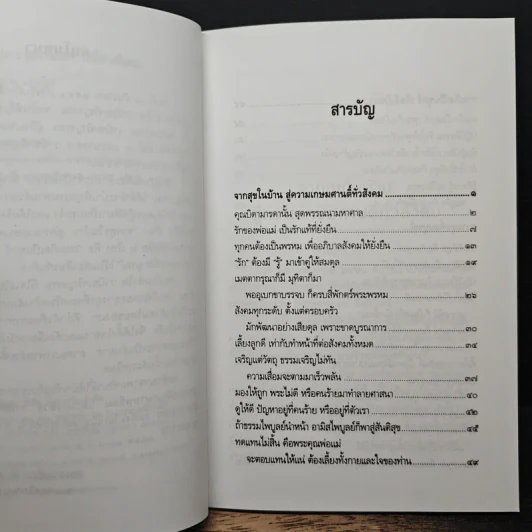 สารบัญ
จากสุขในบ้าน สู่ความเกษมศานติ์ทั่วสังคม ........................ ๑
คุณบิดามารดานั้น สุดพรรณนามหาศาล ........................ ๒
รักของพ่อแม่ เป็นรักแท้ที่ยั่งยืน ........................ ๗
ทุกคนต้องเป็นพรหม เพื่ออภิบาลสังคมให้ยั่งยืน ........................ ๑๓
"รัก" ต้องมี "รู้" มาเข้าคู่ให้สมดุล ........................ ๑๙
เมตตากรุณาก็มี มุทิตาก็มา
พออุเบกขาบรรจบ ก็ครบสี่พักตร์พระพรหม ........................ ๒๖
สังคมทุกระดับ ตั้งแต่ครอบครัว
มักพัฒนาอย่างเสียดุล เพราะขาดบูรณาการ ........................ ๓๐
เลี้ยงลูกดี เท่ากับทำหน้าที่ต่อสังคมทั้งหมด ........................ ๓๔
เจริญแต่วัตถุ ธรรมเจริญไม่ทัน
ความเสื่อมจะตามมาเร็วพลัน ........................ ๓๗
มองให้ถูก พระไม่ดี หรือคนร้ายมาทำลายศาสนา ........................ ๔๐
ดูให้ดี ปัญหาอยู่ที่คนร้าย หรืออยู่ที่ตัวเรา ........................ ๔๒
ถ้าธรรมไพบูลย์นำหน้า อามิสไพบูลย์ก็พาสู่สันติสุข ........................ ๔๕
ทดแทนไม่สิ้น คือพระคุณพ่อแม่
จะตอบแทนให้แน่ ต้องเลี้ยงทั้งกายและใจของท่าน ........................ ๔๙